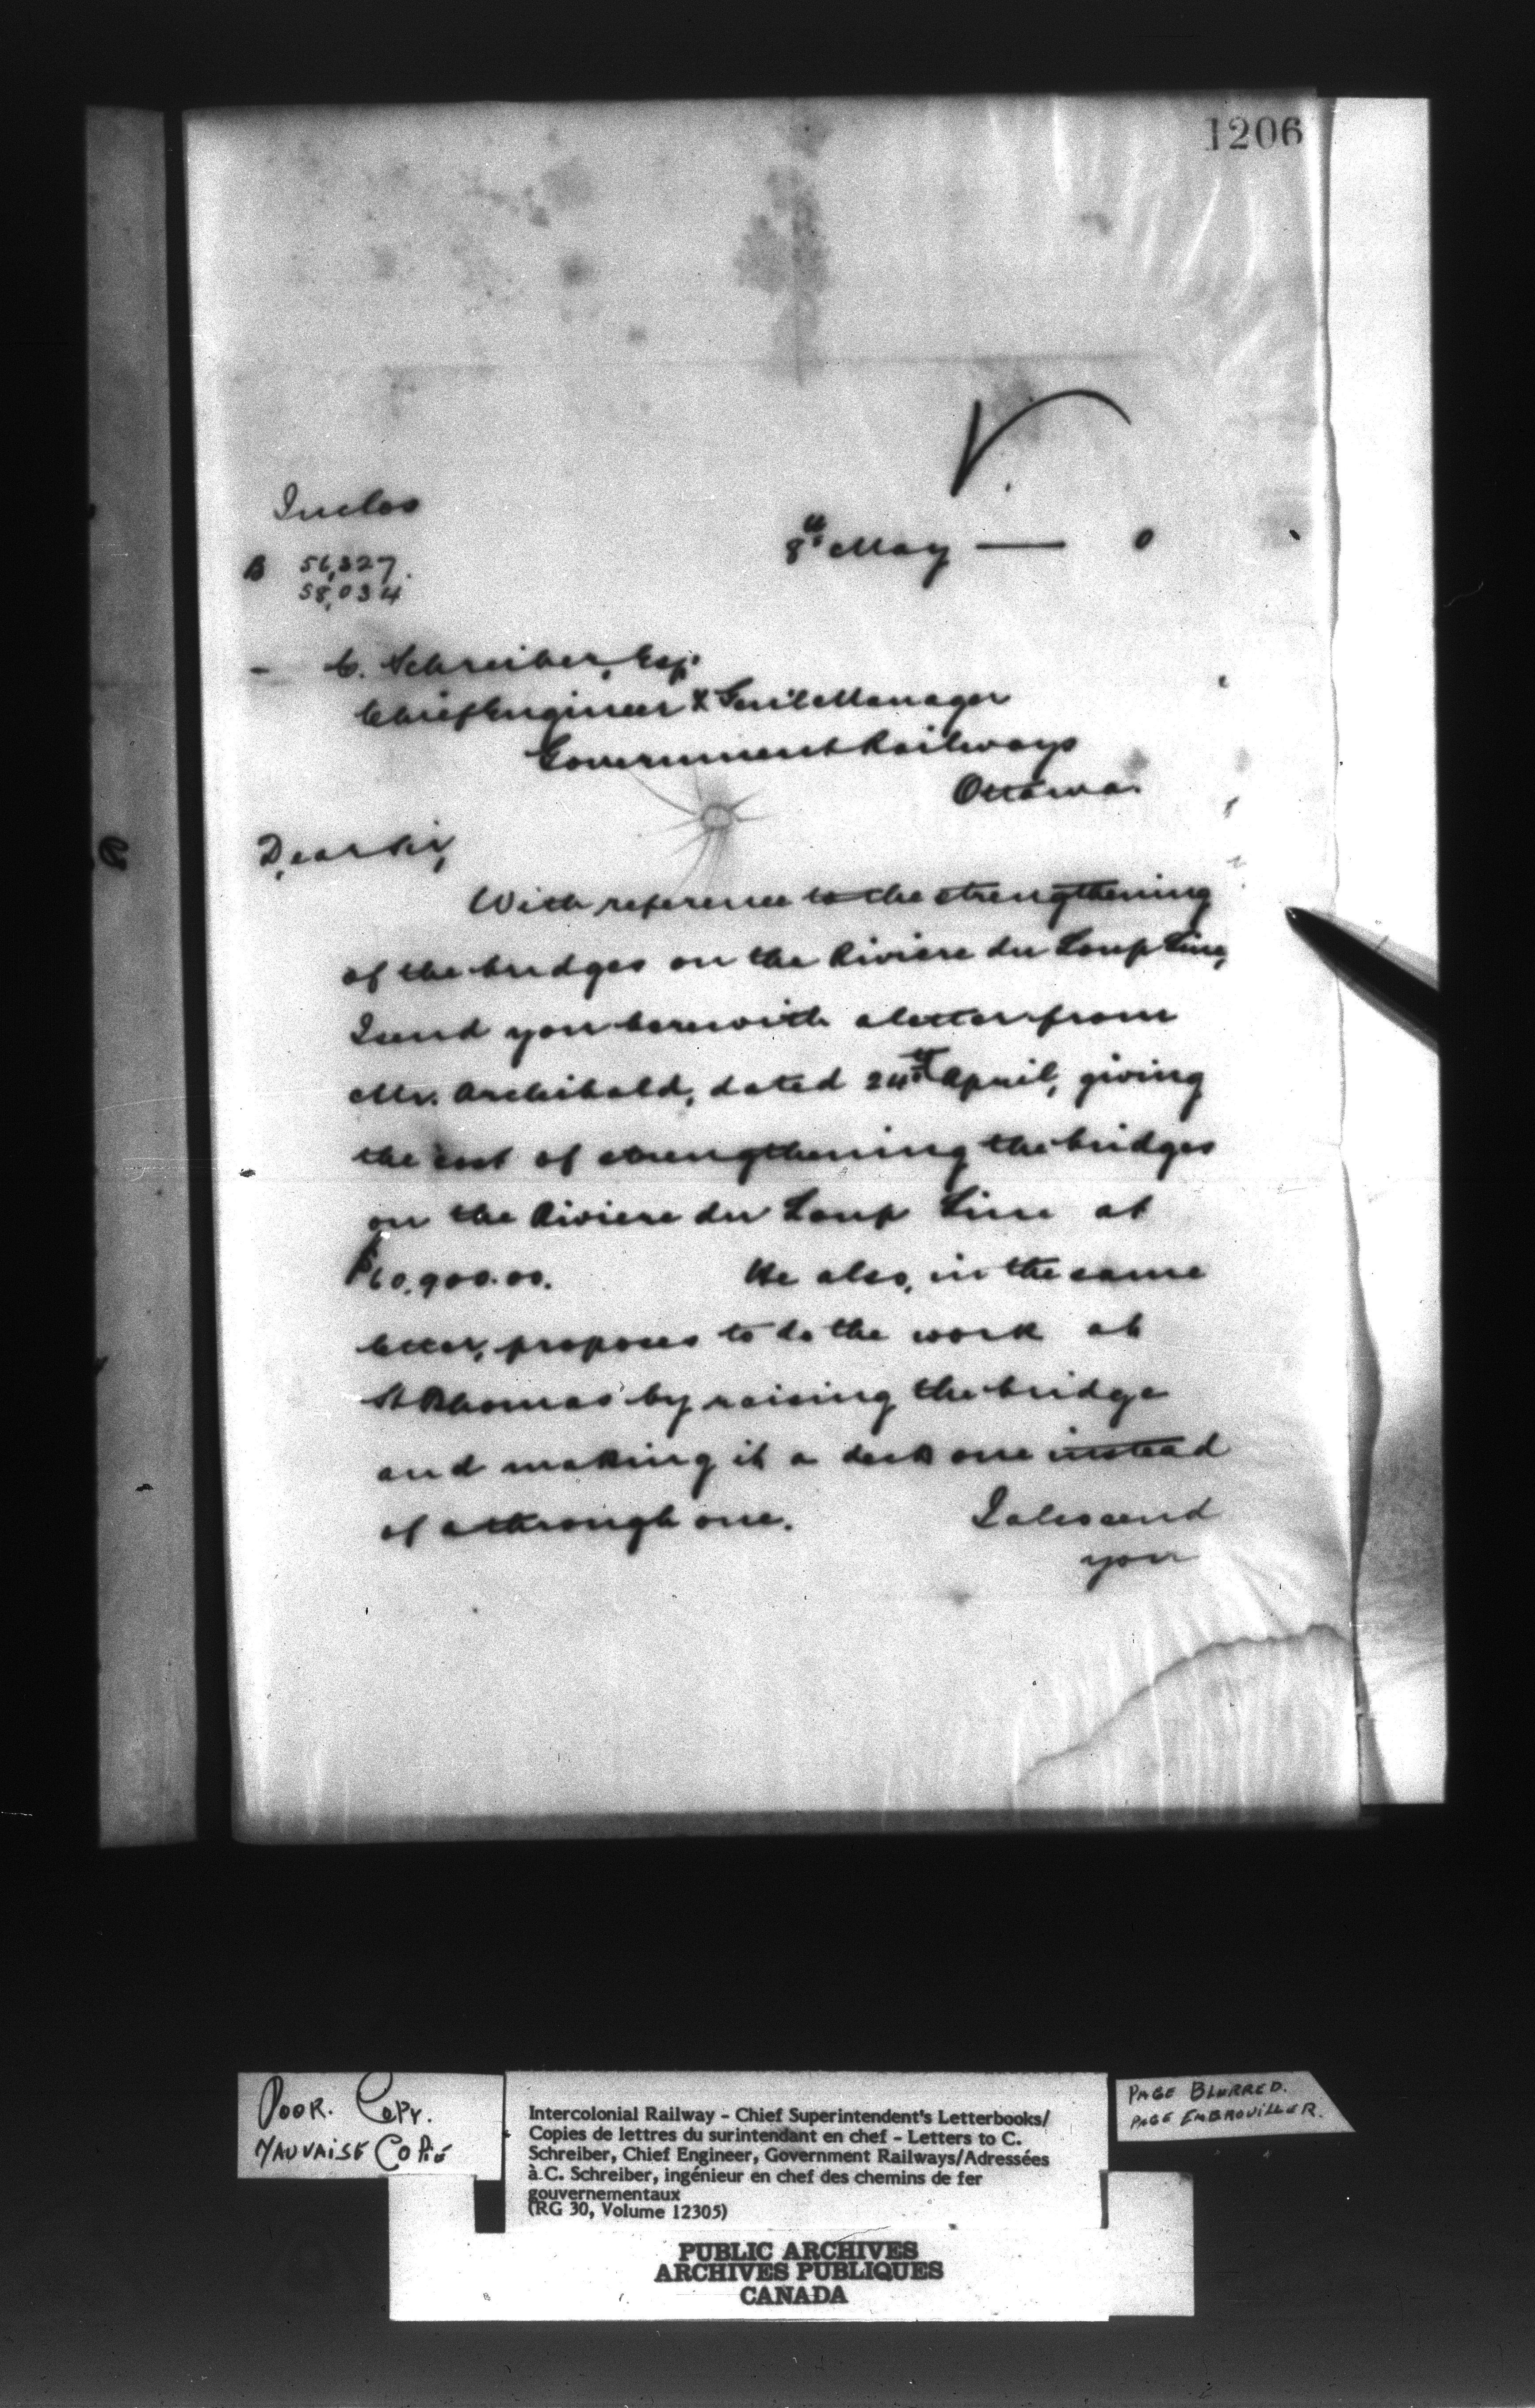 1206
Inclos
8th May — 0
B 56,327.
58,034
C. Schreiber, Esq.
Chief Engineer & Gen'l Manager
Government Railways
Ottawa.
Dear Sir,
With reference to the strengthening
of the bridges on the Riviere du Loup Line,
I send you herewith a letter from
Mr. Archibald, dated 24th April, giving
the cost of strengthening the bridges
on the Riviere du Loup Line at
$60,900.00. He also, in the same
letter, proposes to do the work at
St Thomas by raising the bridge
and making it a deck one instead
of a through one. I also send
you
POOR. COPY.
MAUVAISE COPIE
Intercolonial Railway - Chief Superintendent's Letterbooks/
Copies de lettres du surintendant en chef - Letters to C.
Schreiber, Chief Engineer, Government Railways/Adressées
à C. Schreiber, ingénieur en chef des chemins de fer
gouvernementaux
(RG 30, Volume 12305)
PAGE BLURRED.
PAGE EMBROUILLER.
PUBLIC ARCHIVES
ARCHIVES PUBLIQUES
CANADA